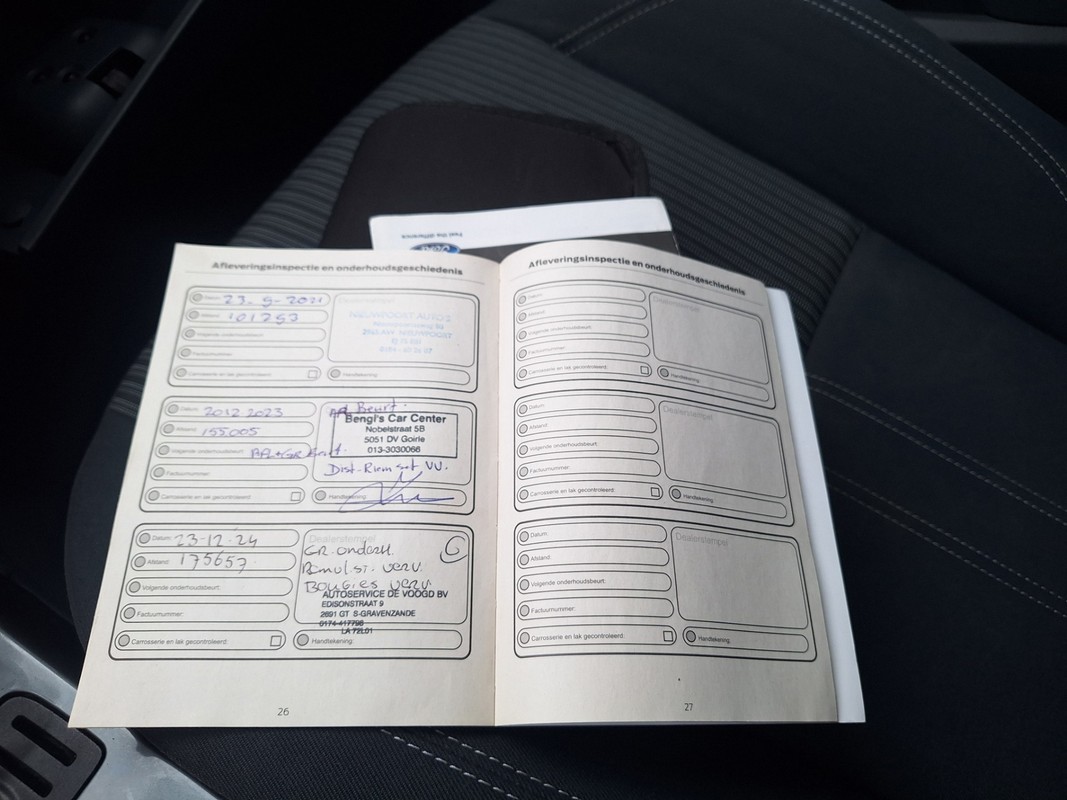 Feel the difference
Ford
Afleveringsinspectie en onderhoudsgeschiedenis
Datum: 23-9-2021
Afstand: 101253
Volgende onderhoudsbeurt:
Factuurnummer:
Carrosserie en lak gecontroleerd:
Dealerstempel
NIEUWPOORT AUTO'S
Handtekening:
Datum: 2012 2023
Afstand: 155005
Volgende onderhoudsbeurt:
Factuurnummer:
Carrosserie en lak gecontroleerd:
Beurt.
Bengi's Car Center
Nobelstraat 5B
5051 DV Goirle
013-3030066
Dist-Riem set VV.
Handtekening:
Datum: 23-12-24
Afstand: 175657
Volgende onderhoudsbeurt:
Factuurnummer:
Carrosserie en lak gecontroleerd:
Dealerstempel
GR. onderh.
verv.
Bougies verv.
AUTOSERVICE DE VOOGD BV
EDISONSTRAAT 9
2691 GT S-GRAVENZANDE
0174-417798
LA 72L01
Handtekening:
26
Afleveringsinspectie en onderhoudsgeschiedenis
Datum:
Afstand:
Volgende onderhoudsbeurt:
Factuurnummer:
Carrosserie en lak gecontroleerd:
Dealerstempel
Handtekening:
Datum:
Afstand:
Volgende onderhoudsbeurt:
Factuurnummer:
Carrosserie en lak gecontroleerd:
Dealerstempel
Handtekening:
Datum:
Afstand:
Volgende onderhoudsbeurt:
Factuurnummer:
Carrosserie en lak gecontroleerd:
Dealerstempel
Handtekening:
27